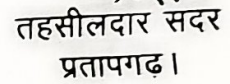 तहसीलदार सदर
प्रतापगढ़।